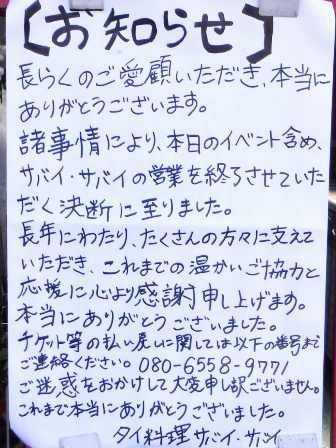 【お知らせ】
長らくのご愛顧いただき、本当に
ありがとうございます。
諸事情により、本日のイベント含め、
サバイ・サバイの営業を終了させていた
だく決断に至りました。
長年にわたり、たくさんの方々に支えて
いただき、これまでの温かいご協力と
応援に心より感謝申し上げます。
本当にありがとうございました。
チケット等の払い戻しに関しては以下の番号まで
ご連絡ください。080-6558-9771
ご迷惑をおかけして大変申し訳ございません。
これまで本当にありがとうございました。
タイ料理サバイ・サバイ